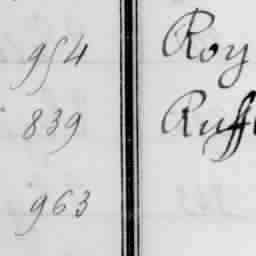 954 Roy
839 Ruff
963